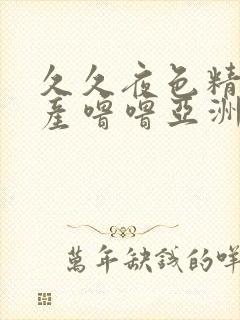 久久夜色精
產嚕嚕亞洲
萬年缺錢的咩